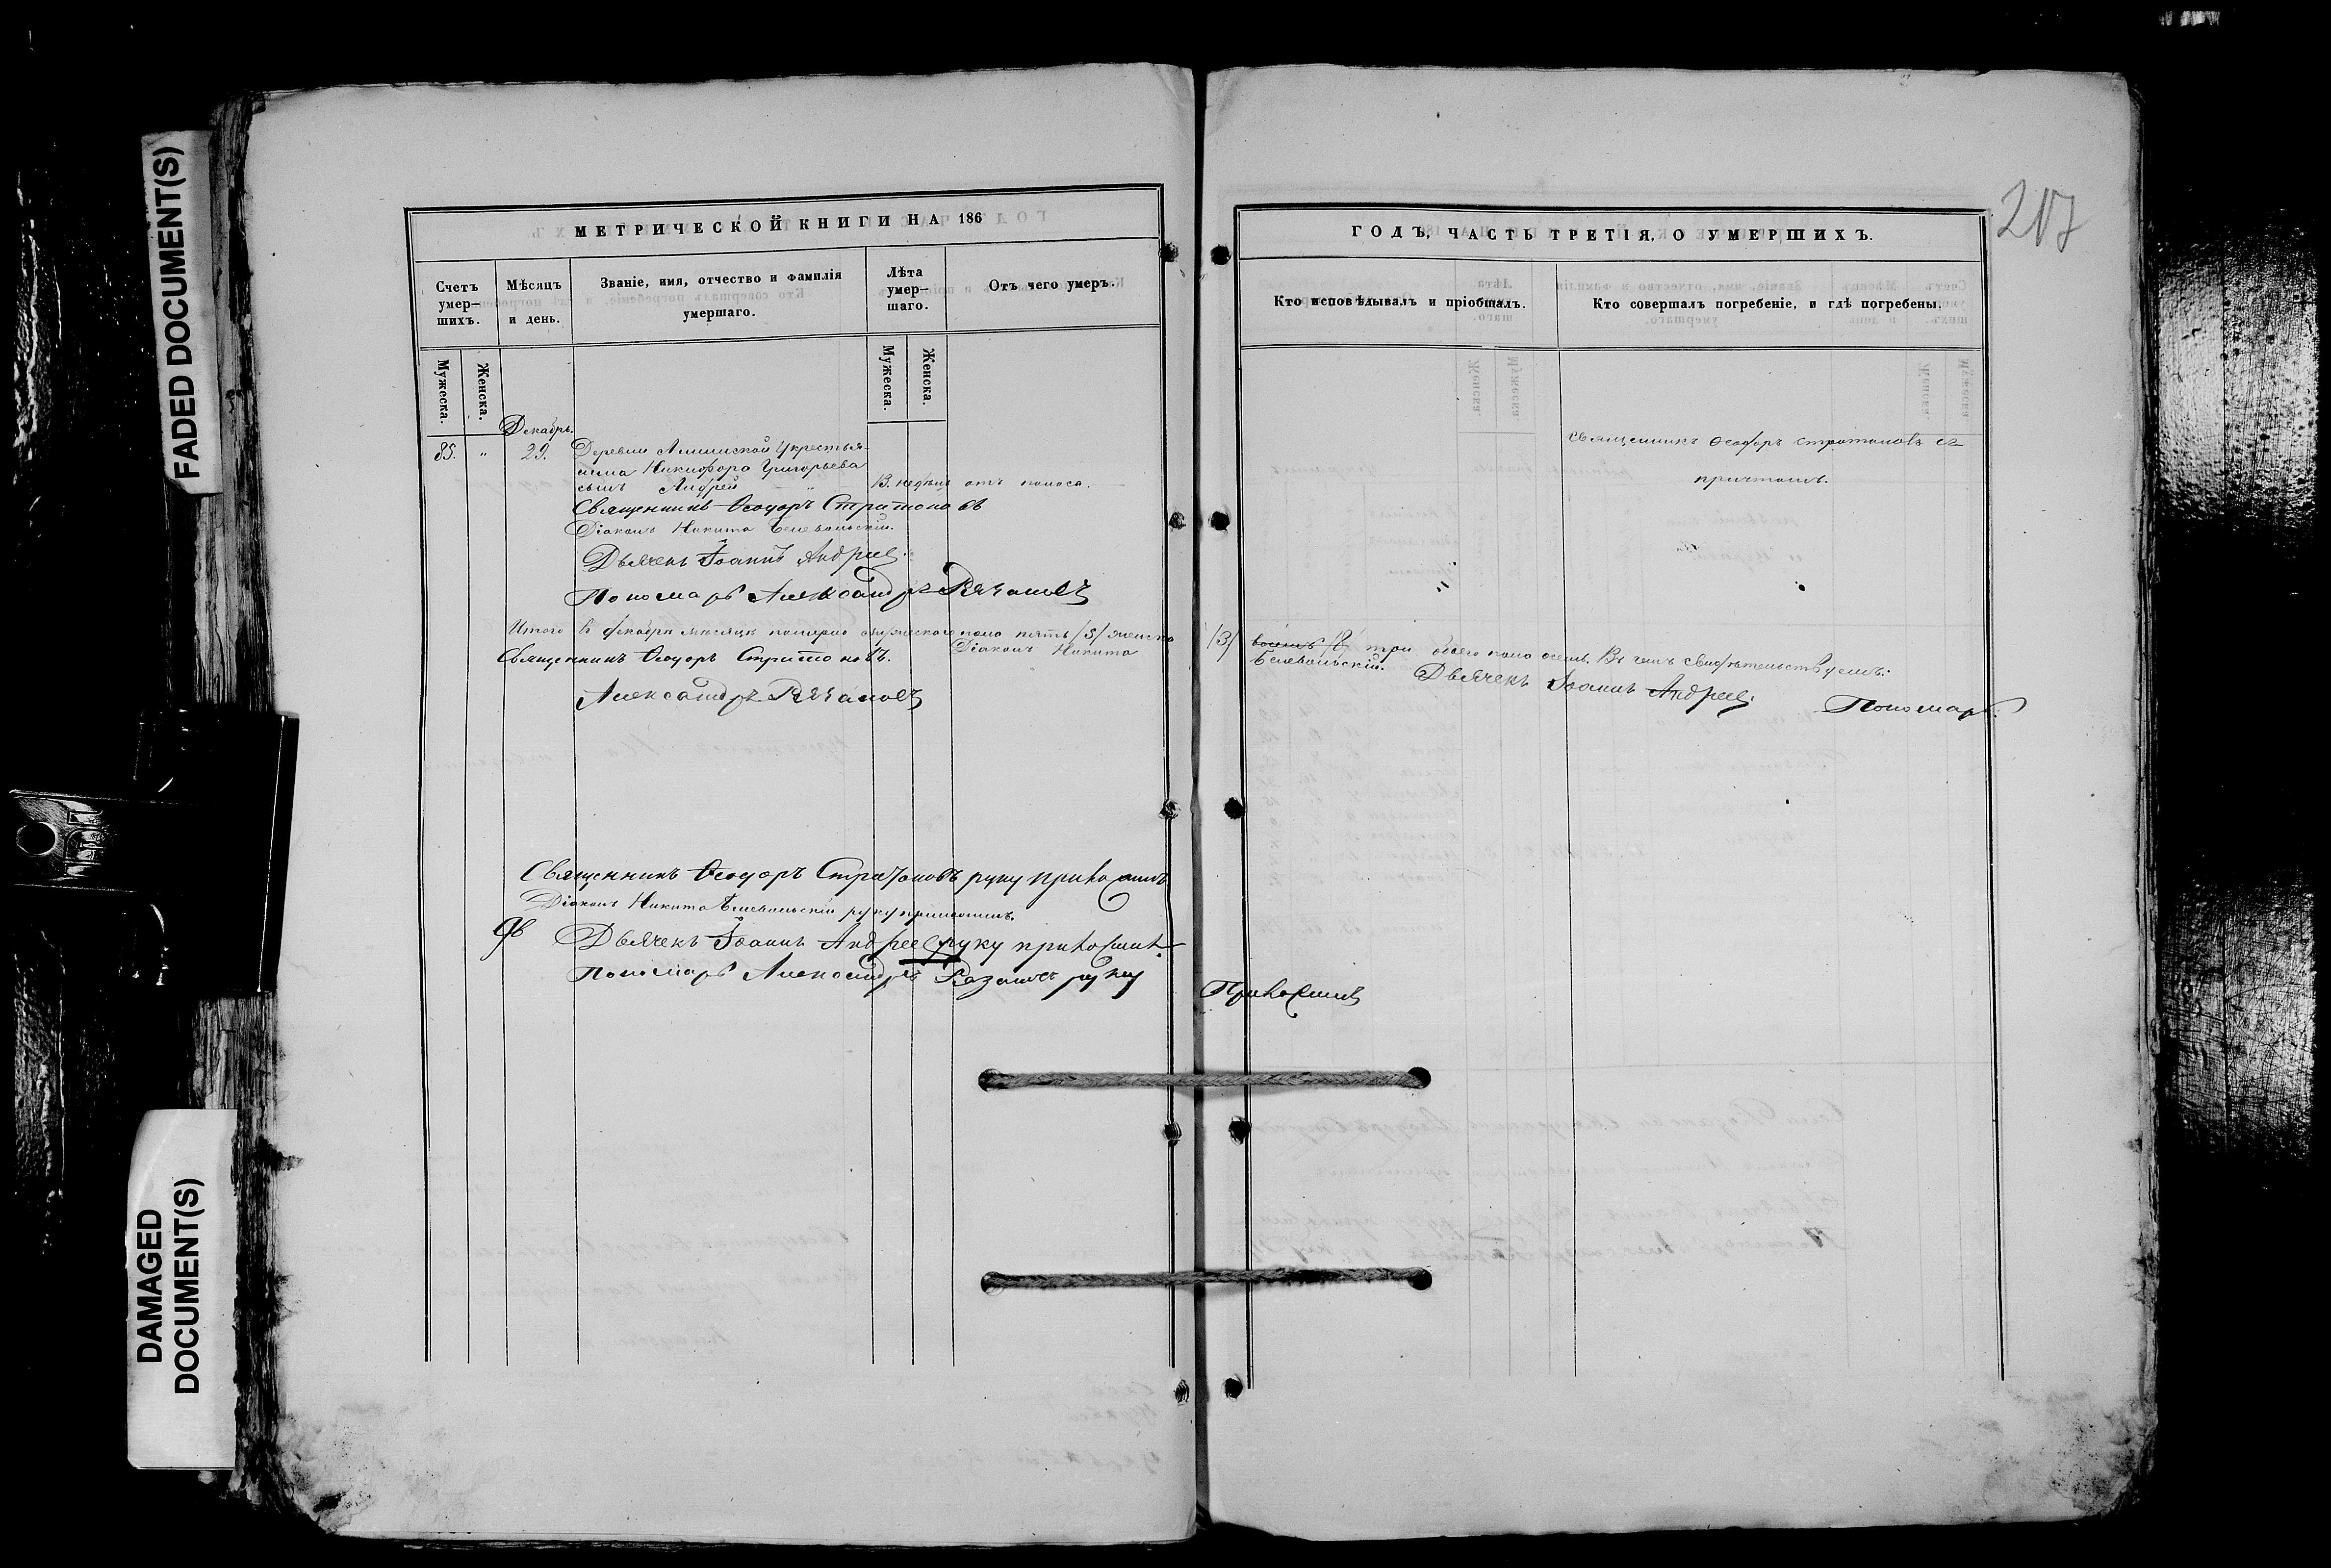 FADED DOCUMENT(S)
DAMAGED
DOCUMENT(S)
МЕТРИЧЕСКОЙ КНИГИ НА 186
Счетъ умер–шихъ.
Мѣсяцъ и день.
Званіе, имя, отчество и фамилія умершаго.
Лѣта умер–шаго.
Отъ чего умеръ.
Мужеска.
Женска.
Мужеска.
Женска.
Декабрь.
85. " 29. Деревни Алишской у крестья–
нина Никифора Григорьева
сынъ Андрей " 13. недѣль отъ поноса.
Священникъ Ѳеодоръ Стратоновъ
Діаконъ Никита Бѣлевольскій.
Дьячекъ Іоаннъ Андреев.
Пономарь Александръ Рязановъ
Итого въ декабрѣ мѣсяцѣ померло мужескаго пола пять /5/ женска
Священникъ Ѳеодоръ Стратоновъ. Діаконъ Никита
Александръ Рязановъ
Священникъ Ѳеодоръ Стратоновъ руку приложилъ
Діаконъ Никита Бѣлевольскій руку приложилъ.
Дьячекъ Іоаннъ Андреев руку приложилъ.
Пономарь Александръ Рязановъ руку
217
ГОДЪ, ЧАСТЬ ТРЕТІЯ, О УМЕРШИХЪ.
Кто исповѣдывалъ и пріобщалъ.
Кто совершалъ погребеніе, и гдѣ погребены.
Священникъ Ѳеодоръ Стратоновъ съ
причтомъ.
"
/3/ восемь /8/ три обоего пола осемь. Въ чемъ свидѣтельствуемъ:
Бѣлевольскій. Дьячекъ Іоаннъ Андреев. Пономарь
Приложилъ